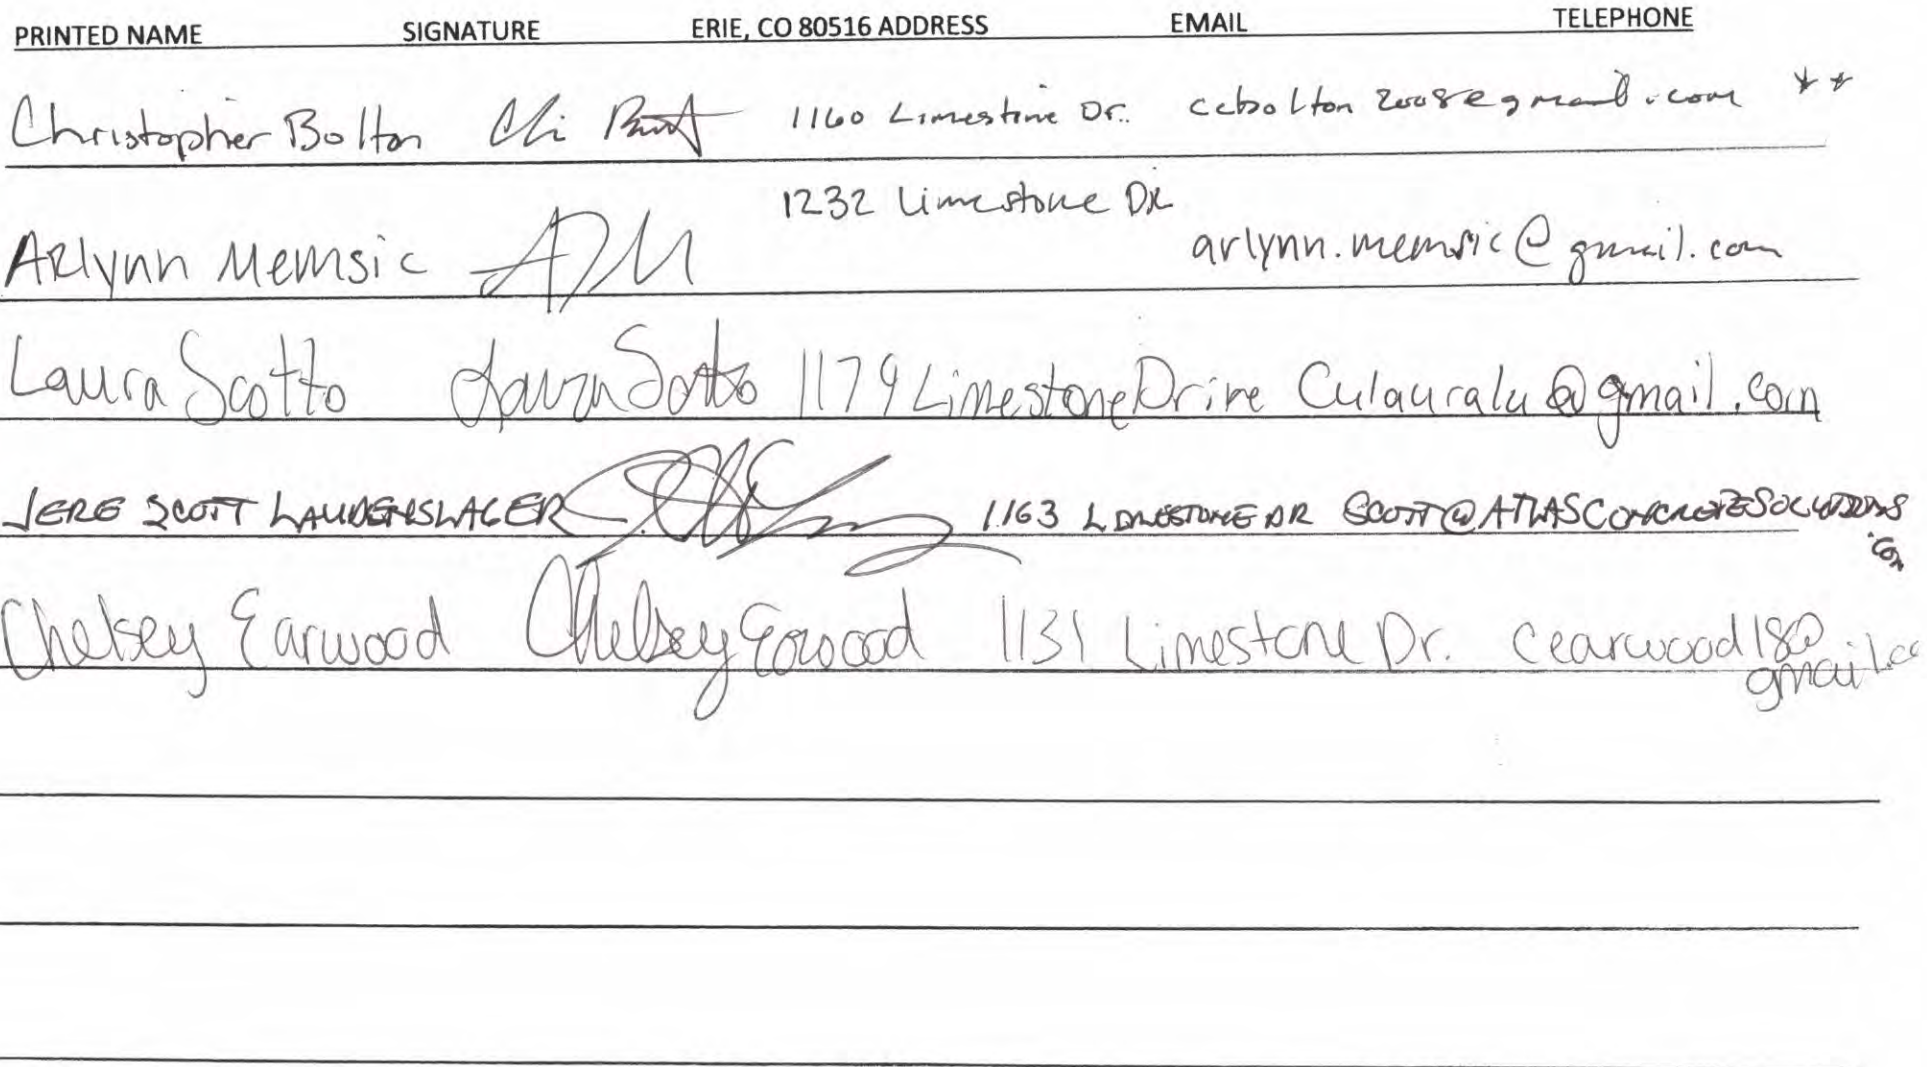 PRINTED NAME SIGNATURE ERIE, CO 80516 ADDRESS EMAIL TELEPHONE
Christopher Bolton 1160 Limestone Dr. ccbolton2008@gmail.com **
Arlynn Memsic 1232 Limestone DR arlynn.memsic@gmail.com
Laura Scotto Laura Scotto 1179 Limestone Drive Culauralu@gmail.com
JERE SCOTT LAUDENSLAGER 1163 LIMESTONE DR SCOTT@ATLASCONCRETESOLUTIONS
.com
Chelsey Earwood Chelsey Earwood 1131 Limestone Dr. cearwood18@
gmail.co